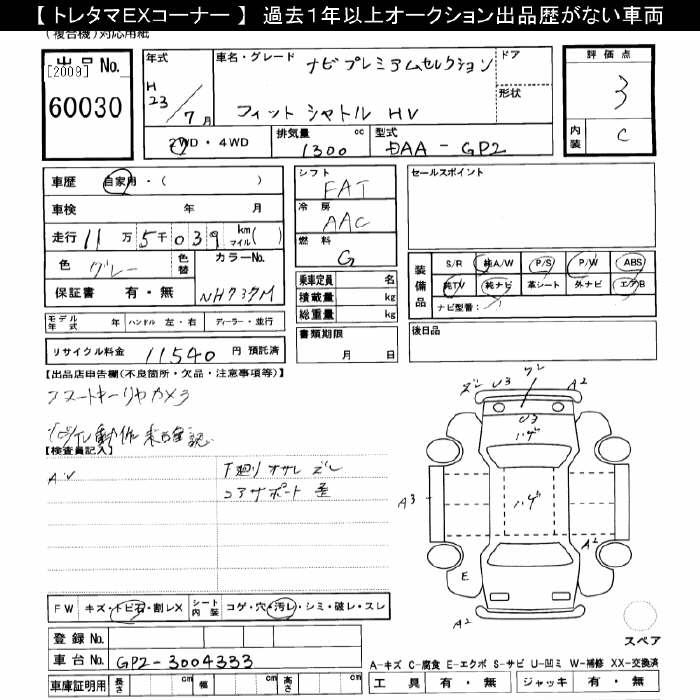 【 トレタマEXコーナー 】 過去1年以上オークション出品歴がない車両
(複合機)対応用紙
出品 No.
[2009]
60030
年式
H
23/7月
車名・グレード
ナビプレミアムセレクション
フィット シャトル HV
ドア
形状
評価点
3
内装
C
2WD・4WD
排気量
cc
1300
型式
DAA - GP2
車歴 自家用・( )
車検 年 月
走行 11万5千039 km マイル( )
色 グレー
色替
カラーNo.
NH737M
保証書 有・無
モデル年式 年 ハンドル 左・右 ディーラー・並行
リサイクル料金 11540 円 預託済
シフト
FAT
冷房
AAC
燃料
G
乗車定員 名
積載量 kg
総重量 kg
書類期限
月 日
セールスポイント
装備品
S/R 純A/W P/S P/W ABS
純TV 純ナビ 革シート 外ナビ エアB
ナビ型番:
後日品
【出品店申告欄(不良箇所・欠品・注意事項等)】
スマートキー リヤカメラ
動作未確認
【検査員記入】
下廻り オサレ ズレ
コアサポート 歪
ズレ
U3
ズレ
A2
U3
ハゲ
A3
ハゲ
A2
E
A2
スペア
FW キズ・トビ石・割レX シート内装 コゲ・穴・汚レ・シミ・破レ・スレ
登録 No.
車台 No. GP2-3004333
車庫証明用 長さ cm 幅 cm 高さ cm
A-キズ C-腐食 E-エクボ S-サビ U-凹ミ W-補修 XX-交換済
工具 有・無 ジャッキ 有・無